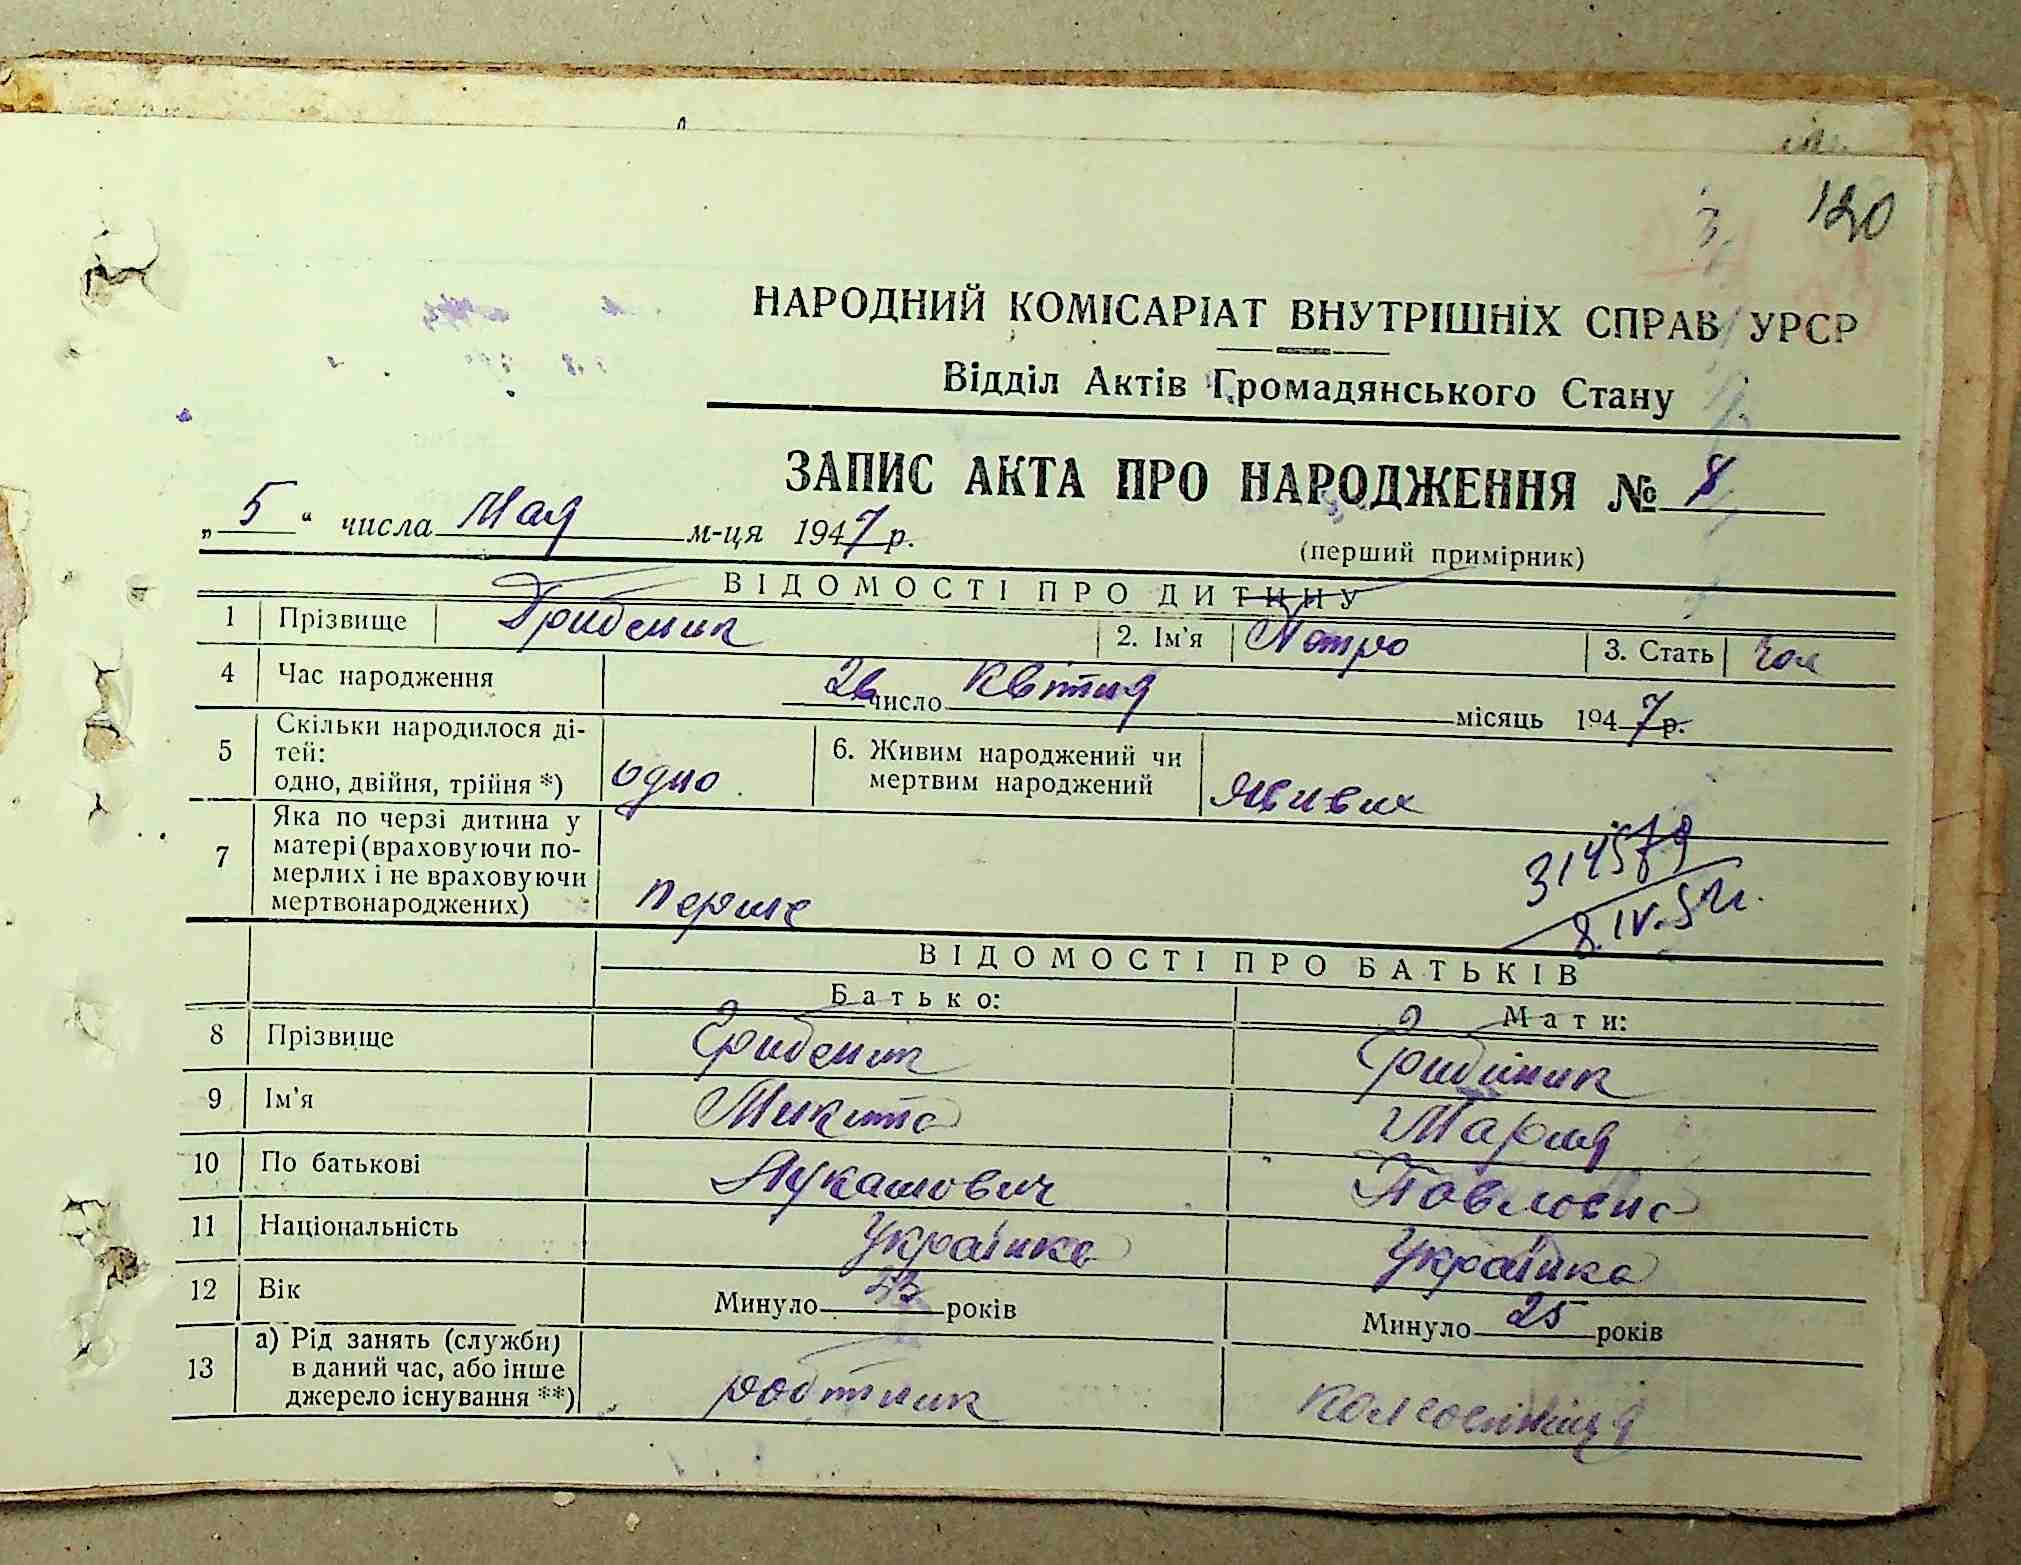 120
НАРОДНИЙ КОМІСАРІАТ ВНУТРІШНІХ СПРАВ УРСР
Відділ Актів Громадянського Стану
ЗАПИС АКТА ПРО НАРОДЖЕННЯ № 8
„5“ числа Мая м-ця 1947 р.
(перший примірник)
ВІДОМОСТІ ПРО ДИТИНУ
1 Прізвище Грибеник 2. Ім'я Петро 3. Стать чол
4 Час народження 26 число Квітня місяць 1947 р.
5 Скільки народилося дітей: одно, двійня, трійня *) одно 6. Живим народжений чи мертвим народжений живим
7 Яка по черзі дитина у матері (враховуючи померлих і не враховуючи мертвонароджених) перше
314579
8.IV.5
ВІДОМОСТІ ПРО БАТЬКІВ
Батько: Мати:
8 Прізвище Грибеник Грибіник
9 Ім'я Микита Мария
10 По батькові Лукашович Павловна
11 Національність Українка Українка
12 Вік Минуло років Минуло 25 років
13 а) Рід занять (служби) в даний час, або інше джерело існування **) робтник